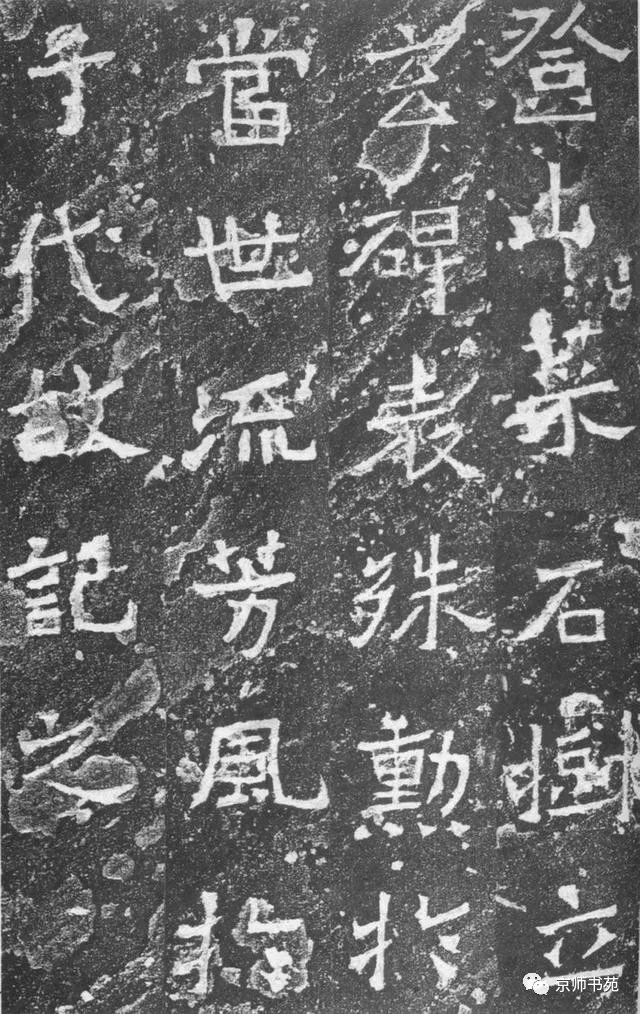 登山菜石樹立
玄碑表殊勳於
當世流芳風於
千代故記之
京师书苑